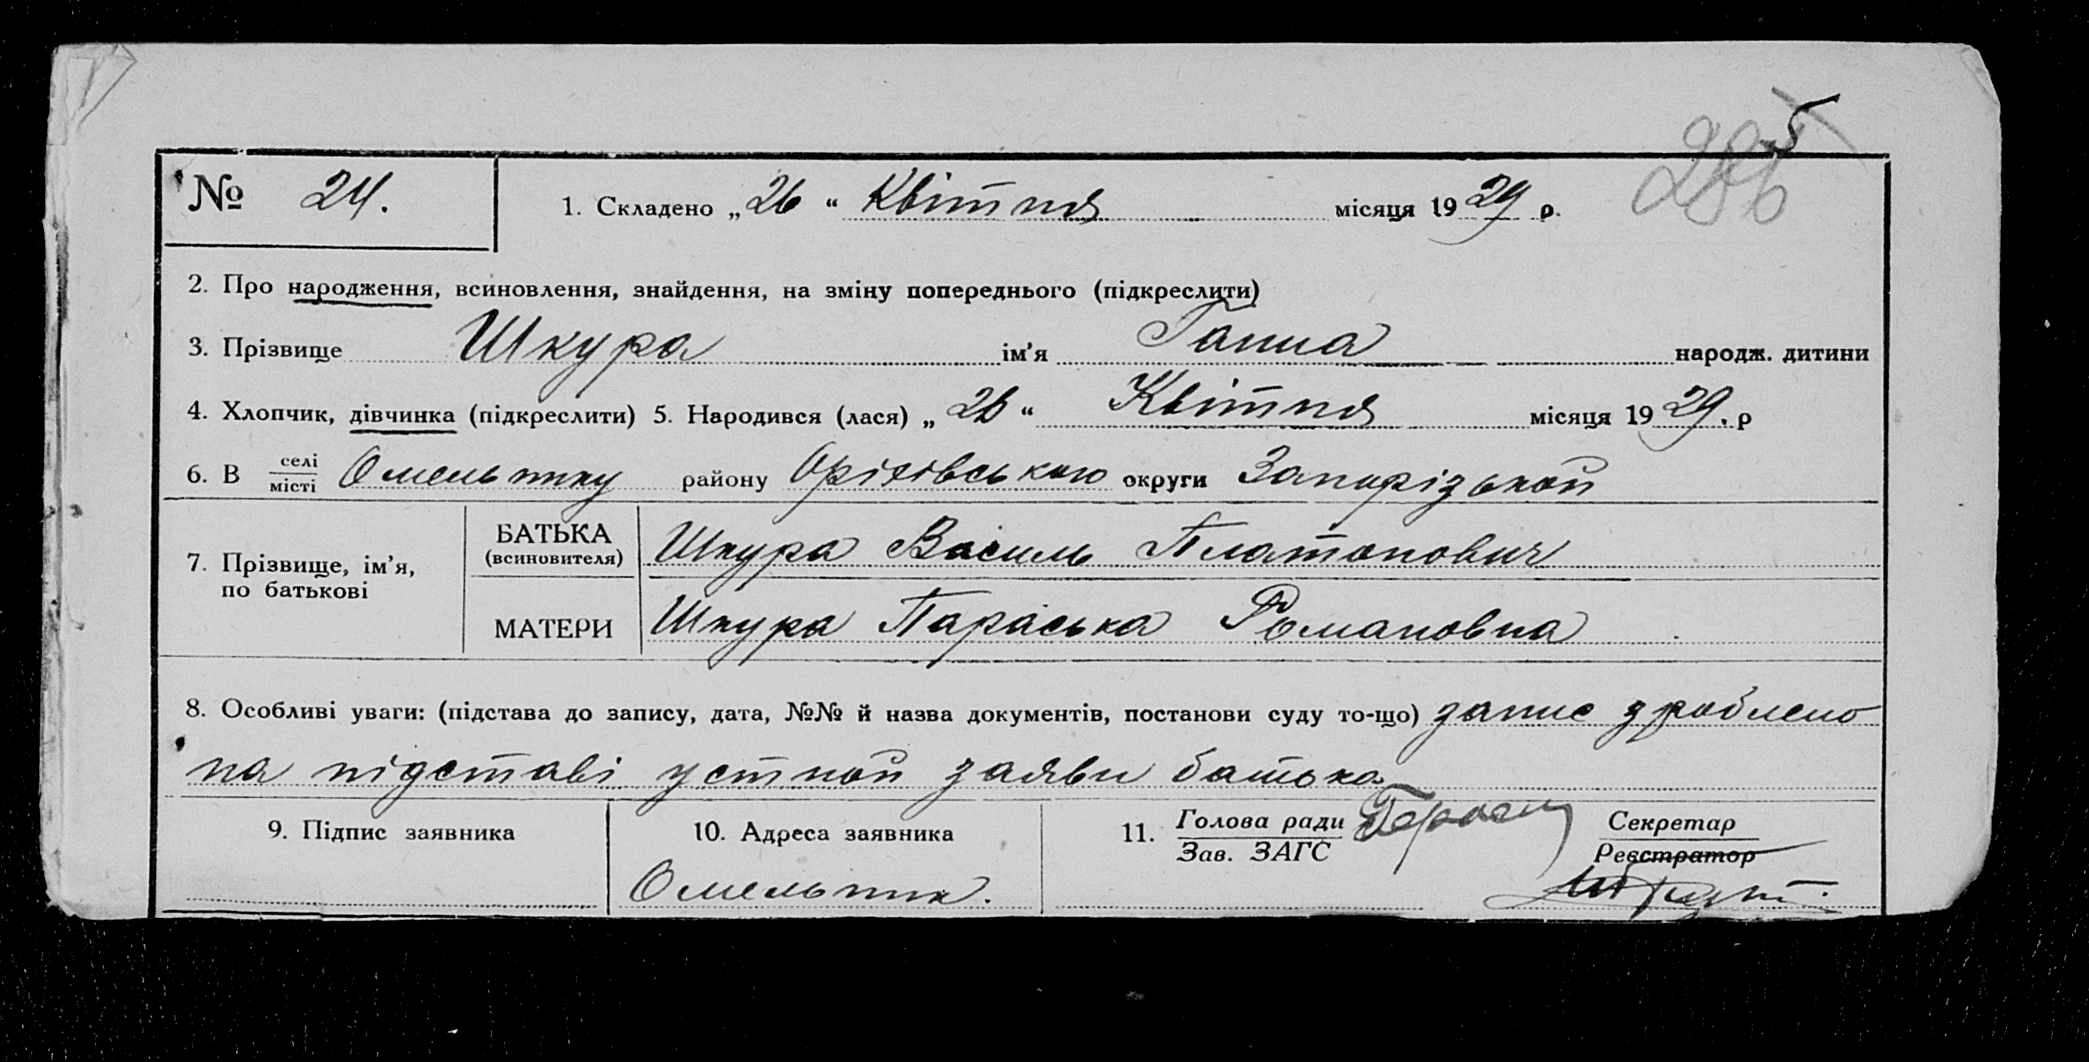 5
286
№ 24. 1. Складено „26“ Квітня місяця 1929 р.
2. Про народження, всиновлення, знайдення, на зміну попереднього (підкреслити)
3. Прізвище Шкура ім'я Ганна народж. дитини
4. Хлопчик, дівчинка (підкреслити) 5. Народився (лася) „26“ Квітня місяця 1929. р
6. В селі місті Омельнику району Оріхівського округи Запорізької
7. Прізвище, ім'я, по батькові
БАТЬКА (всиновителя) Шкура Василь Платонович
МАТЕРИ Шкура Параська Романовна
8. Особливі уваги: (підстава до запису, дата, №№ й назва документів, постанови суду то-що) запис зроблено
на підставі устной заяви батька
9. Підпис заявника 10. Адреса заявника 11. Голова ради Секретар
Зав. ЗАГС Реєстратор
Омельник.